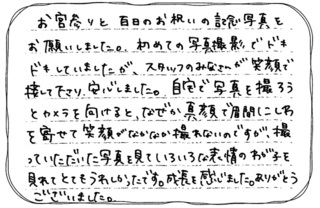 お宮参りと百日のお祝いの記念写真を
お願いしました。初めての写真撮影でドキ
ドキしていましたが、スタッフのみなさんが笑顔で
接して下さり、安心しました。自宅で写真を撮ろう
とカメラを向けると、なぜか真顔で眉間にしわ
を寄せて笑顔がなかなか撮れないのですが、撮
っていただいた写真を見ていろいろな表情のわが子を
見れてとてもうれしかったです。成長を感じました。ありがとう
ございました。